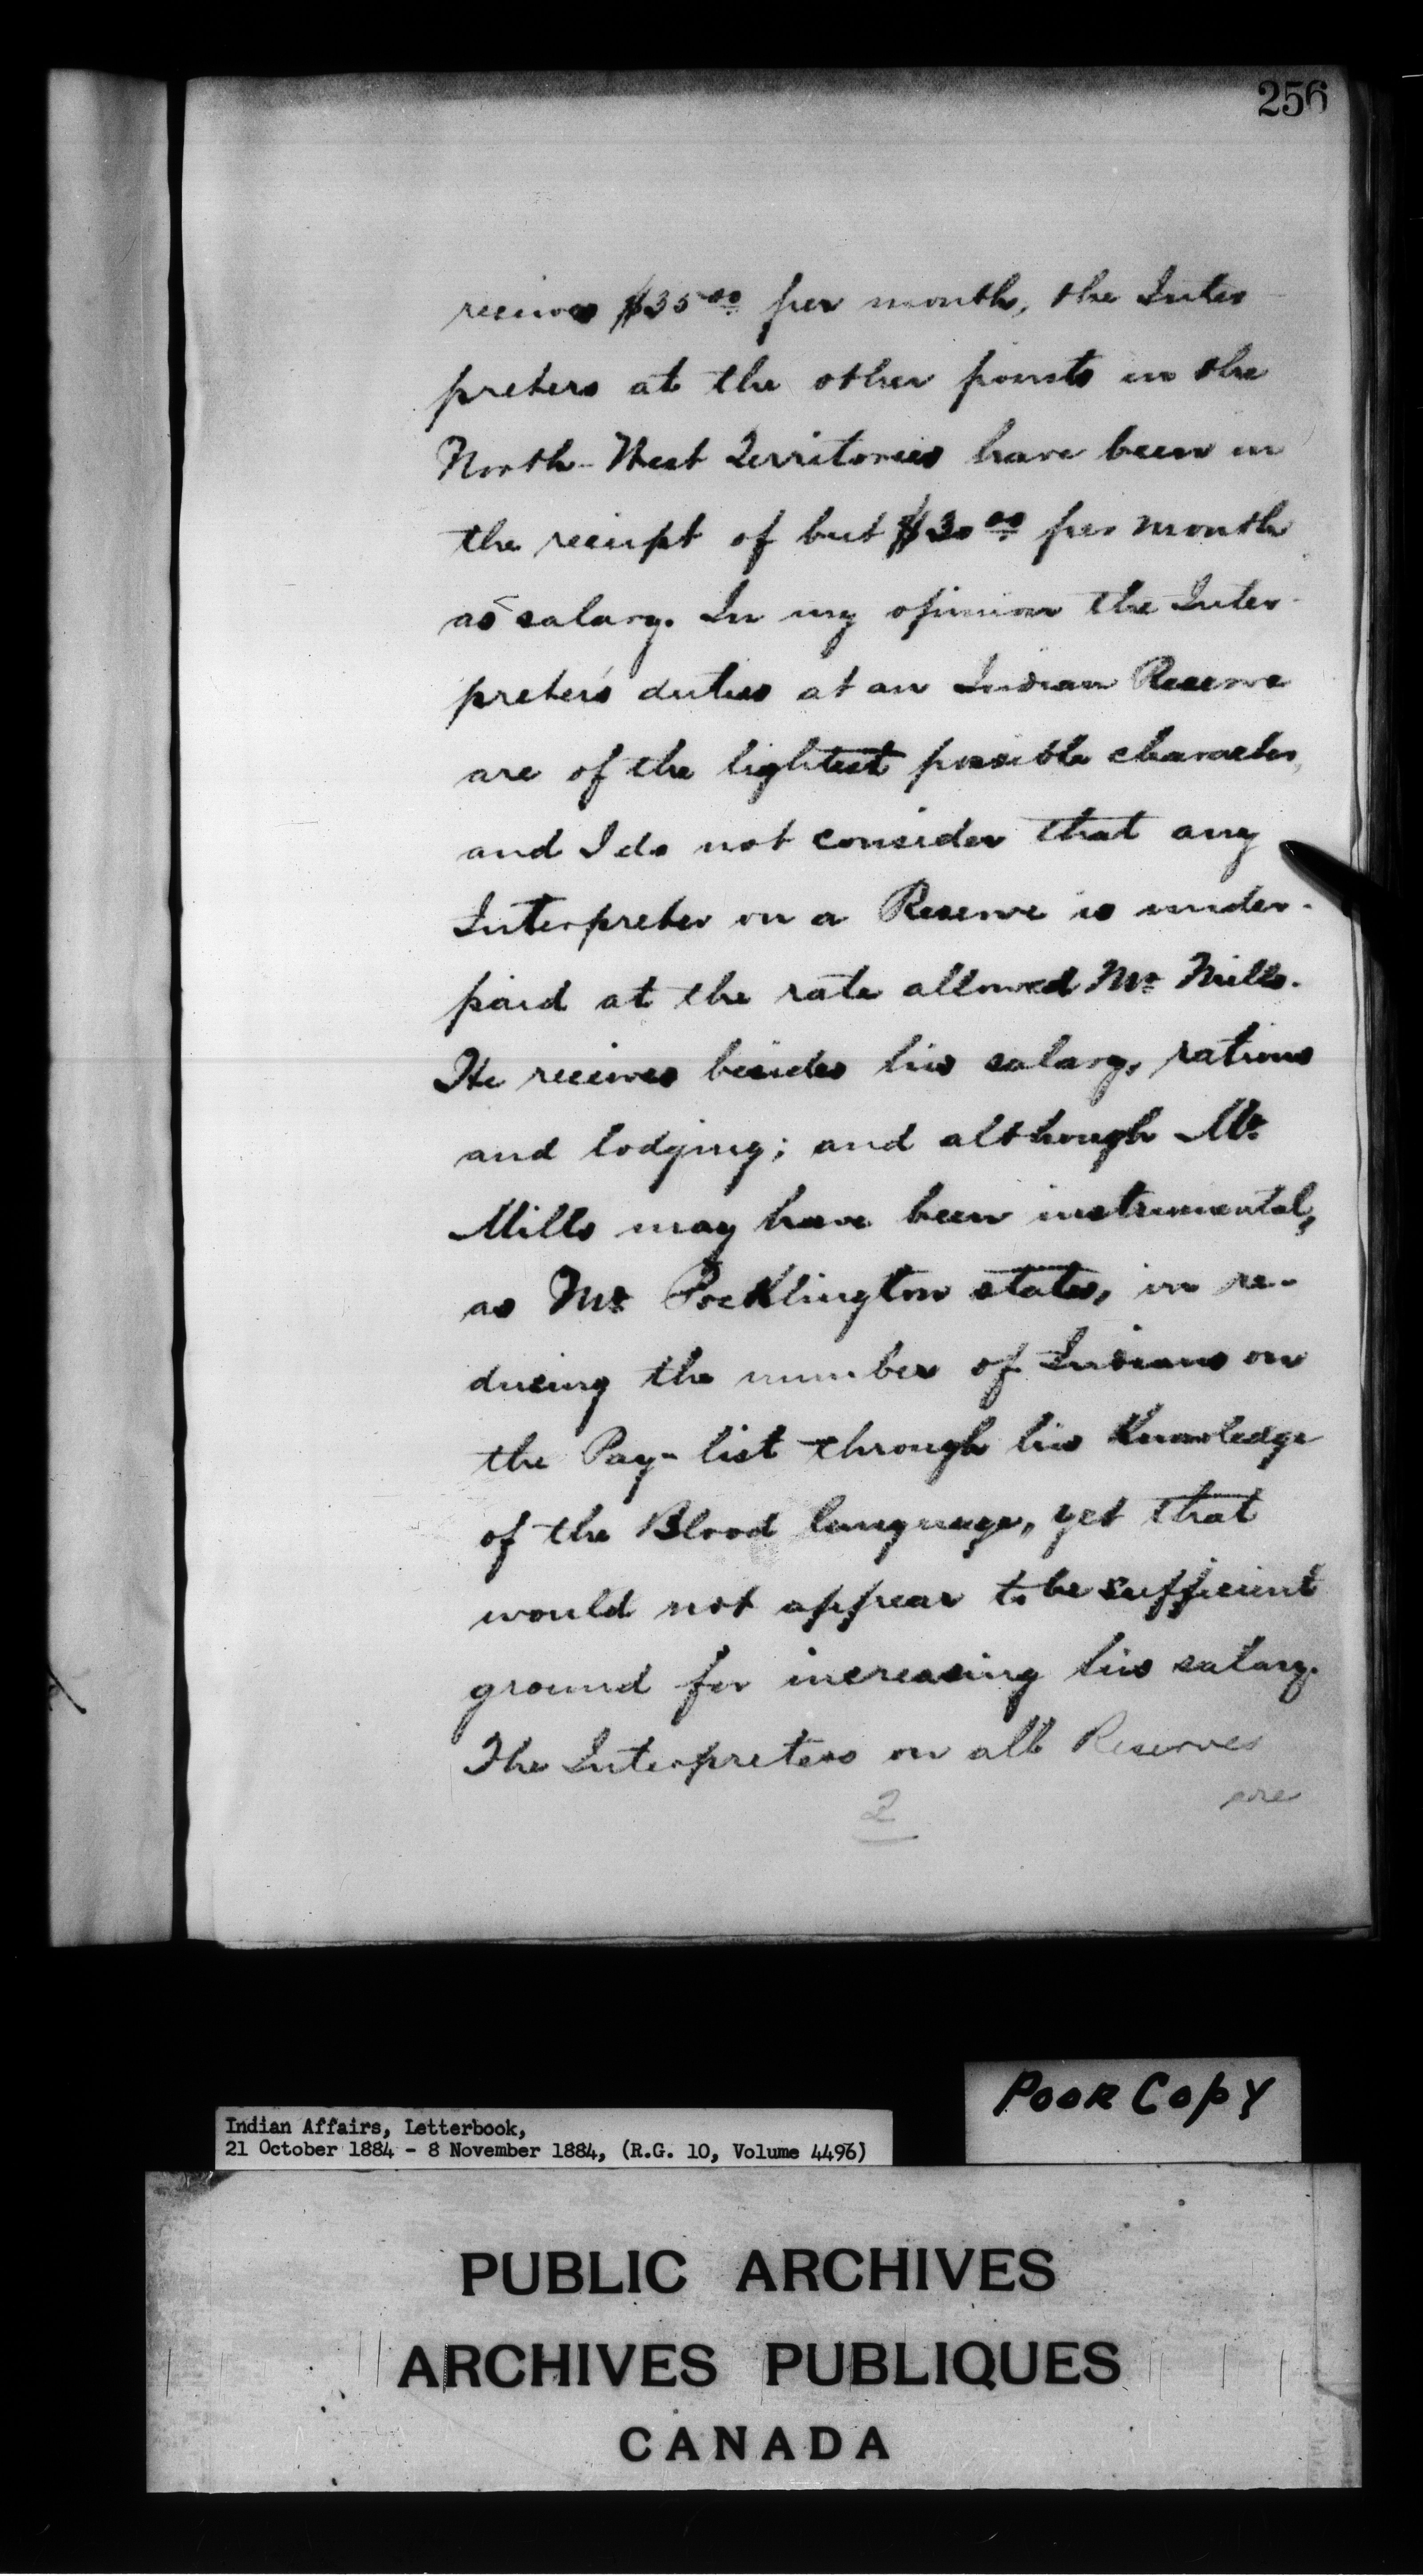 256
receives $35.00 per month, the Inter
preters at the other points in the
North-West Territories have been in
the receipt of but $30.00 per month
as salary. In my opinion the Inter-
preter's duties at an Indian Reserve
are of the lightest possible character,
and I do not consider that any
Interpreter on a Reserve is under-
paid at the rate allowed Mr. Mills.
He receives besides his salary, rations
and lodging; and although Mr.
Mills may have been instrumental,
as Mr. Pocklington states, in re-
ducing the number of Indians on
the Pay-list through his Knowledge
of the Blood language, yet that
would not appear to be sufficient
ground for increasing his salary.
The Interpreters on all Reserves
are
2
POOR COPY
Indian Affairs, Letterbook,
21 October 1884 - 8 November 1884, (R.G. 10, Volume 4496)
PUBLIC ARCHIVES
ARCHIVES PUBLIQUES
CANADA